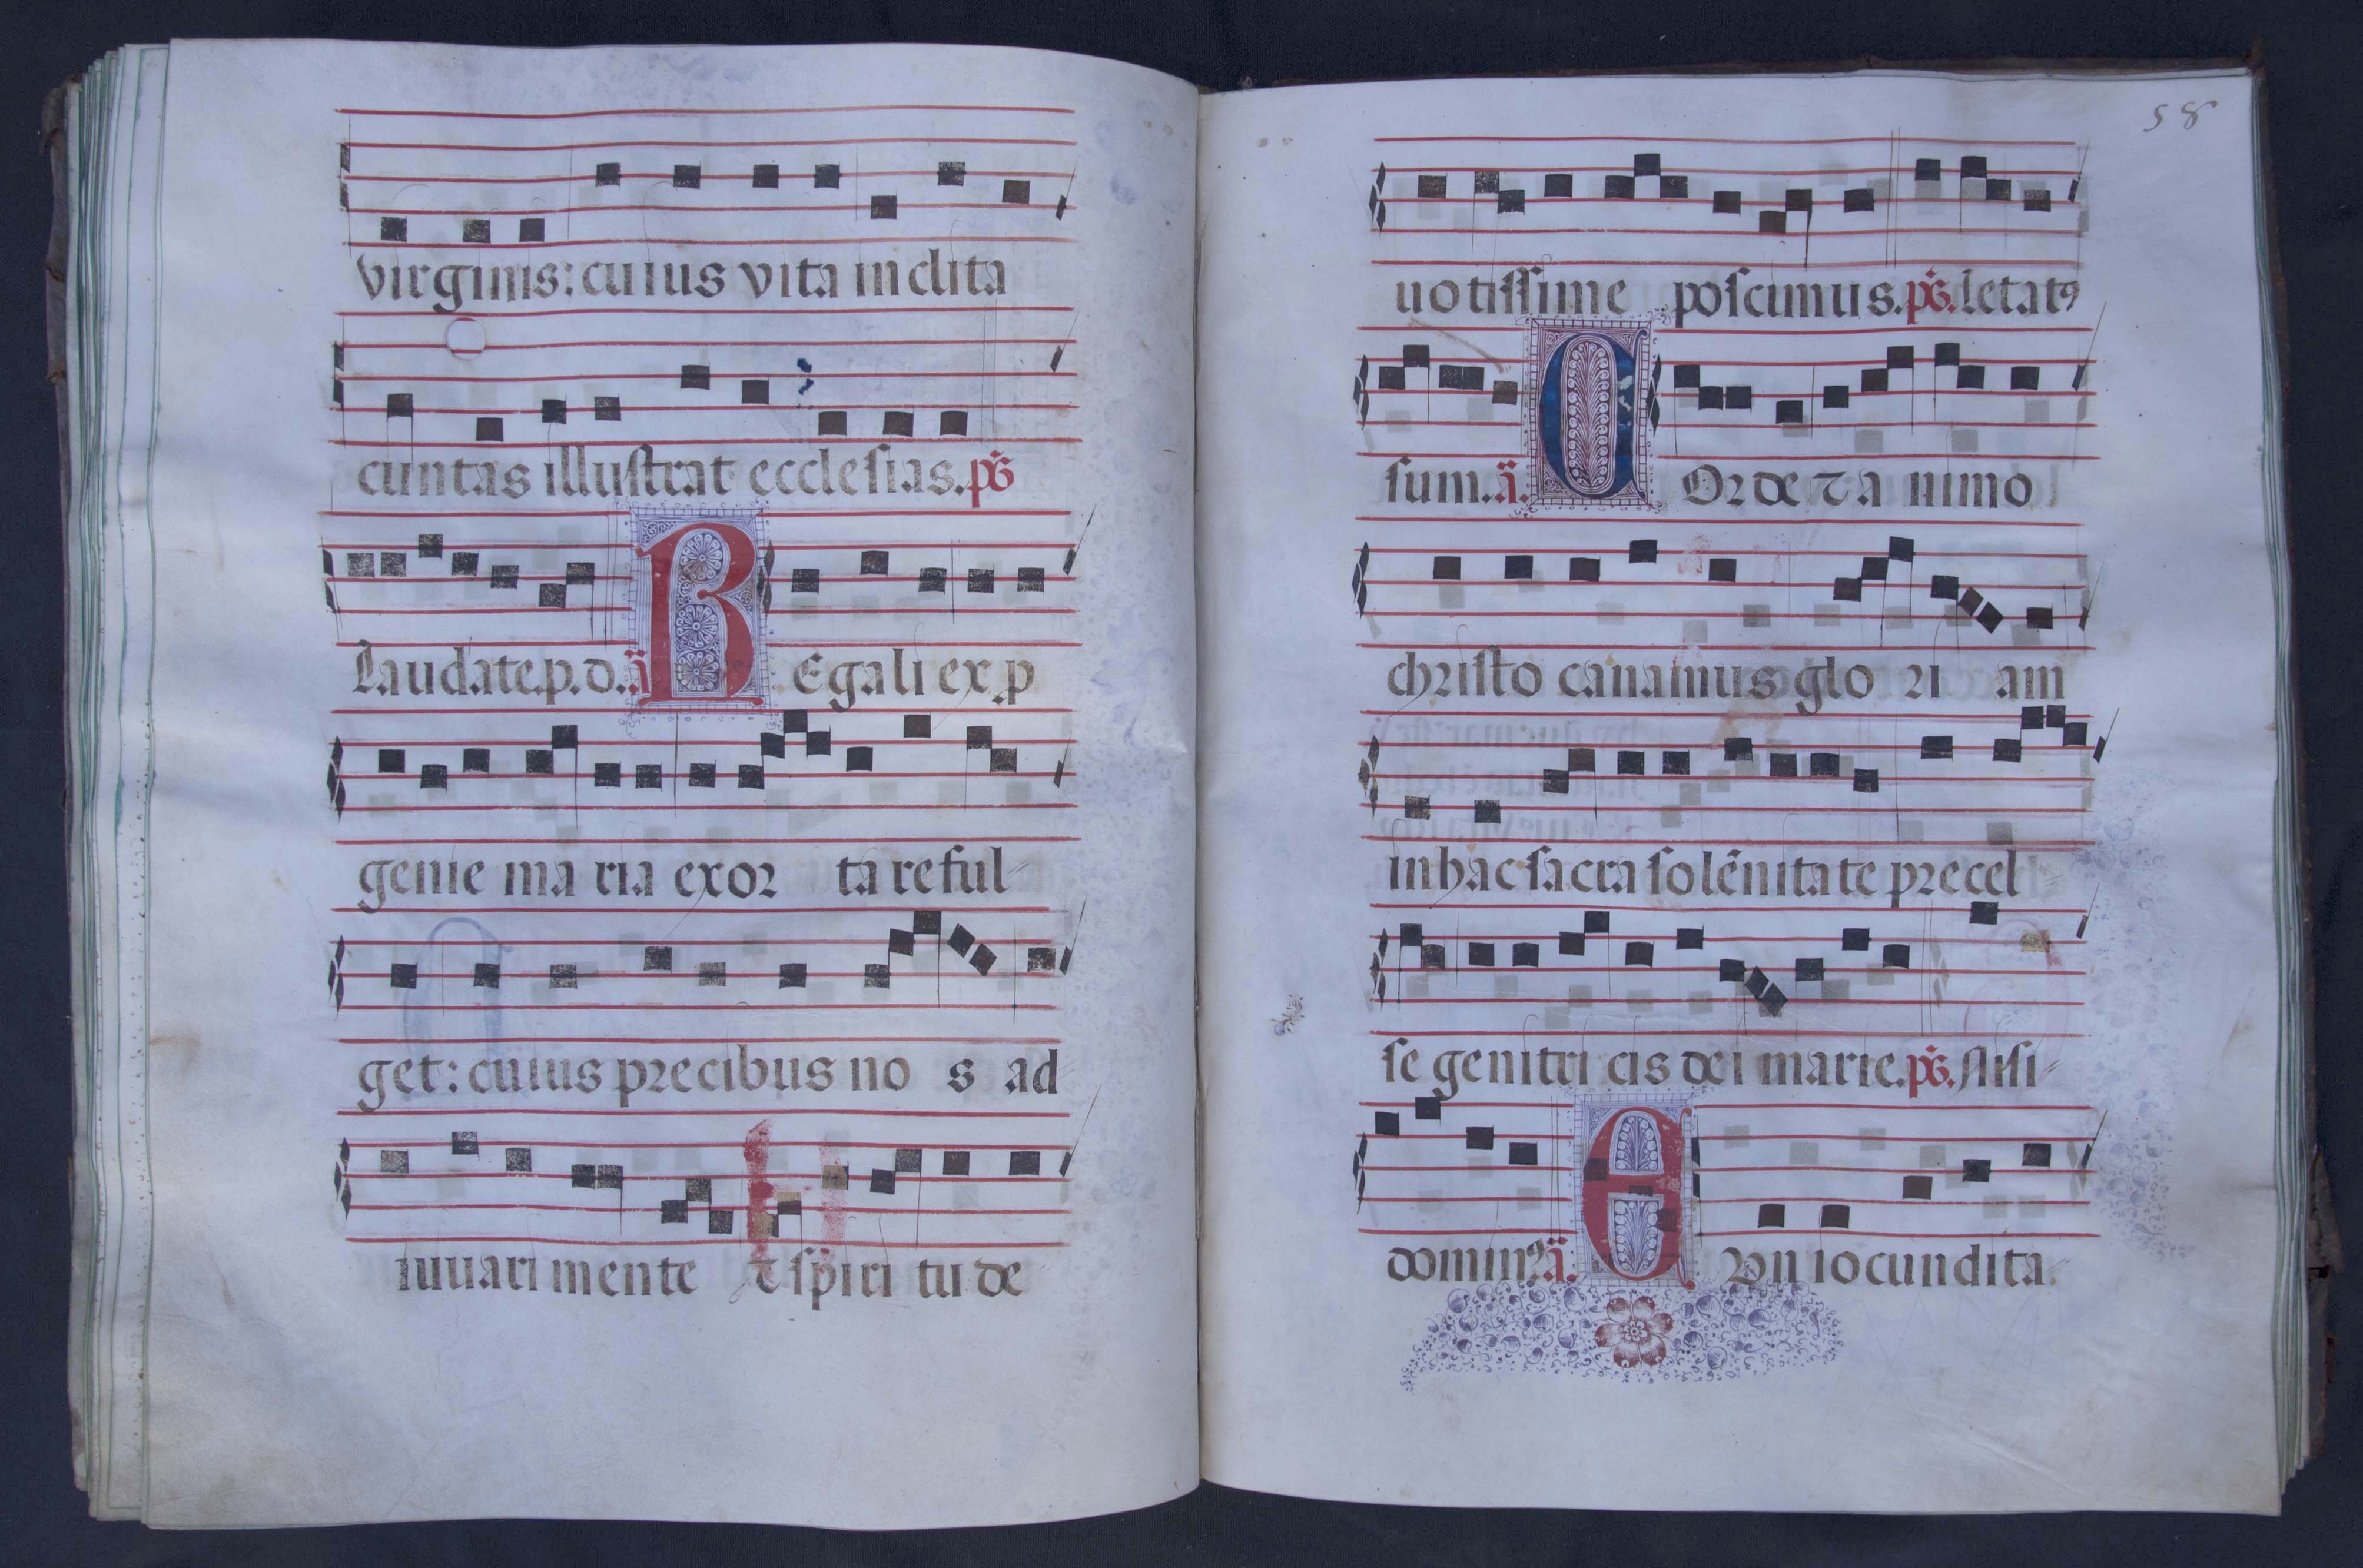 virginis: cuius vita inclita
cunctas illustrat ecclesias. ps
Laudate. p. d. a Regali ex p
genie ma ria exor ta reful-
get: cuius precibus no s ad
iuuari mente et spiri tu de
58
uotissime poscimus. ps. letat9
sum. a. Corde et a nimo
christo canamus glo ri am
in hac sacra solēnita te precel-
se genitri cis dei marie. ps. nisi-
domin9 a. Cun iocundita